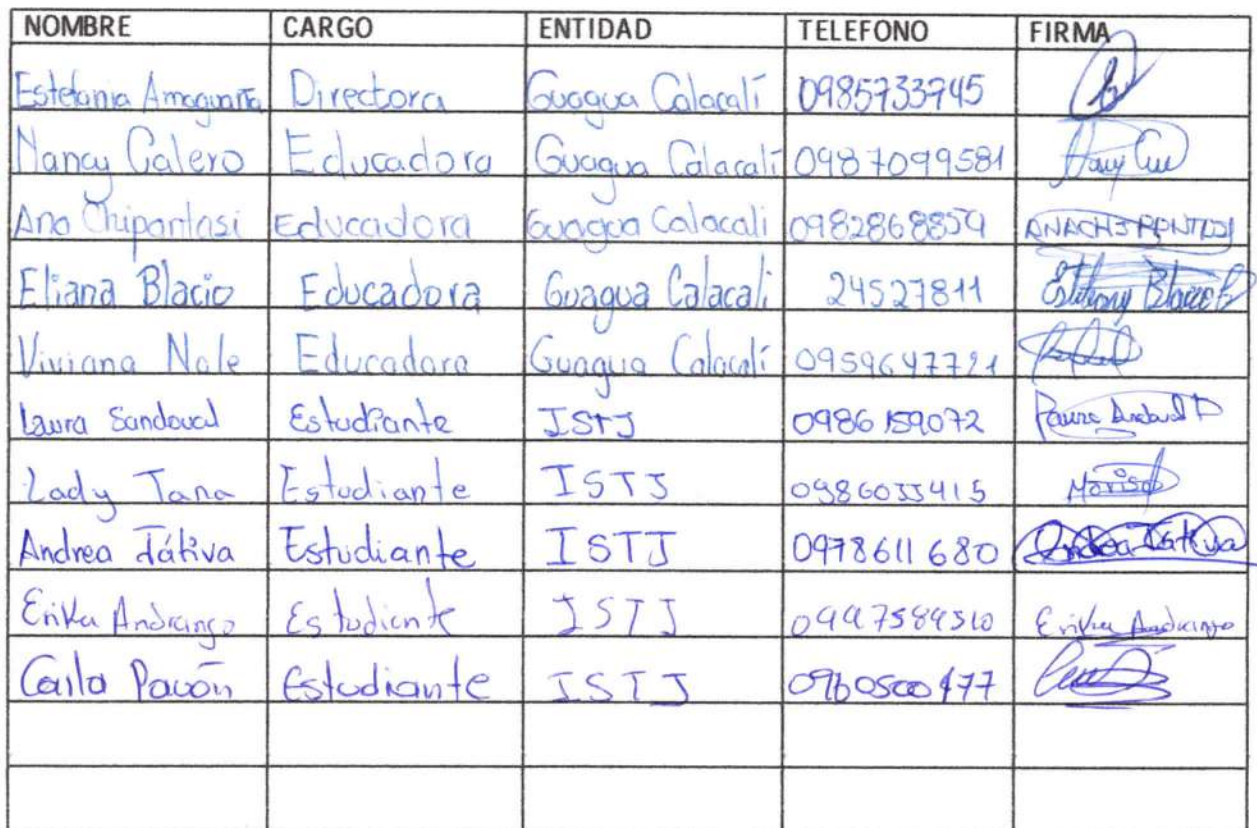 NOMBRE CARGO ENTIDAD TELEFONO FIRMA
Estefania Amaguaña Directora Guagua Calacalí 0985733745
Nancy Calero Educadora Guagua Calacalí 0987099581
Ana Chipantasi Educadora Guagua Calacali 0982868859
Eliana Blacio Educadora Guagua Calacali 24527811
Viviana Nale Educadora Guagua Calacalí 0959647721
Laura Sandoval Estudiante ISTJ 0986159072
Lady Tana Estudiante ISTJ Marisol
Andrea Tátiva Estudiante ISTJ 0978611680 Andrea Tátiva
Erika Andrango Estudiante ISTJ Erika Andrango
Carla Pavón Estudiante ISTJ 0960500477